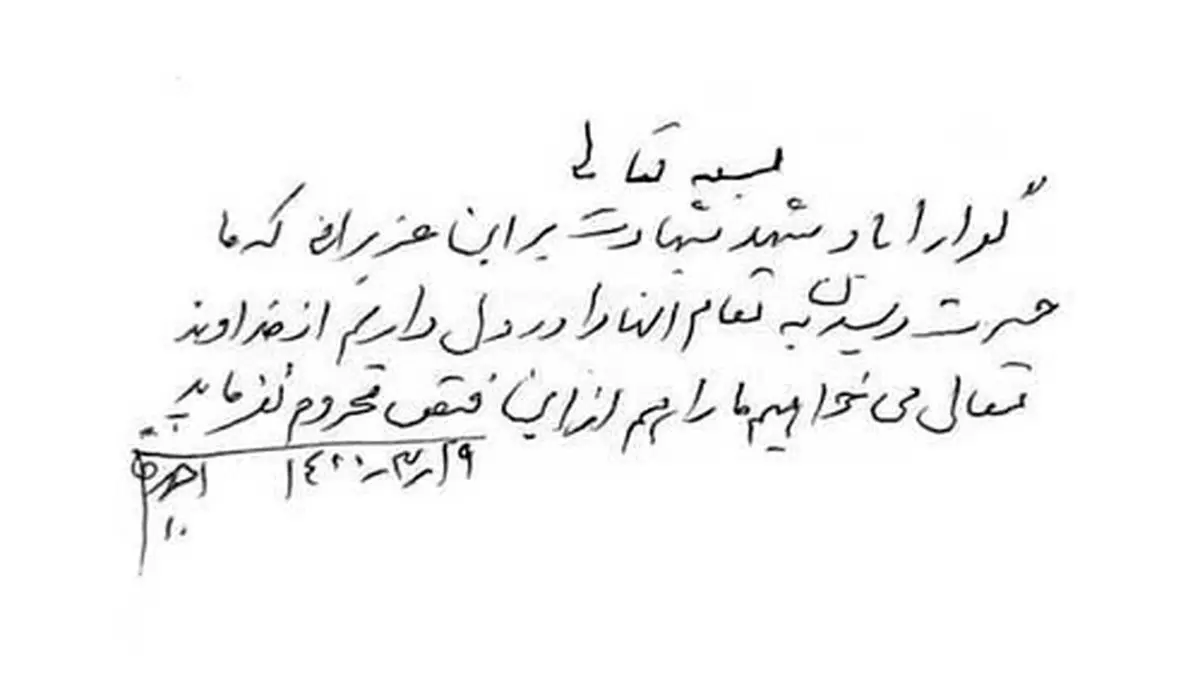 بسمه تعالی
گوارا باد شهد شهادت بر این عزیزانی که ما
حسرت رسیدن به مقام آنها را در دل داریم از خداوند
متعال می خواهیم ما را هم از این فیض محروم نفرماید
۱۴۰۰-۳-۱۹